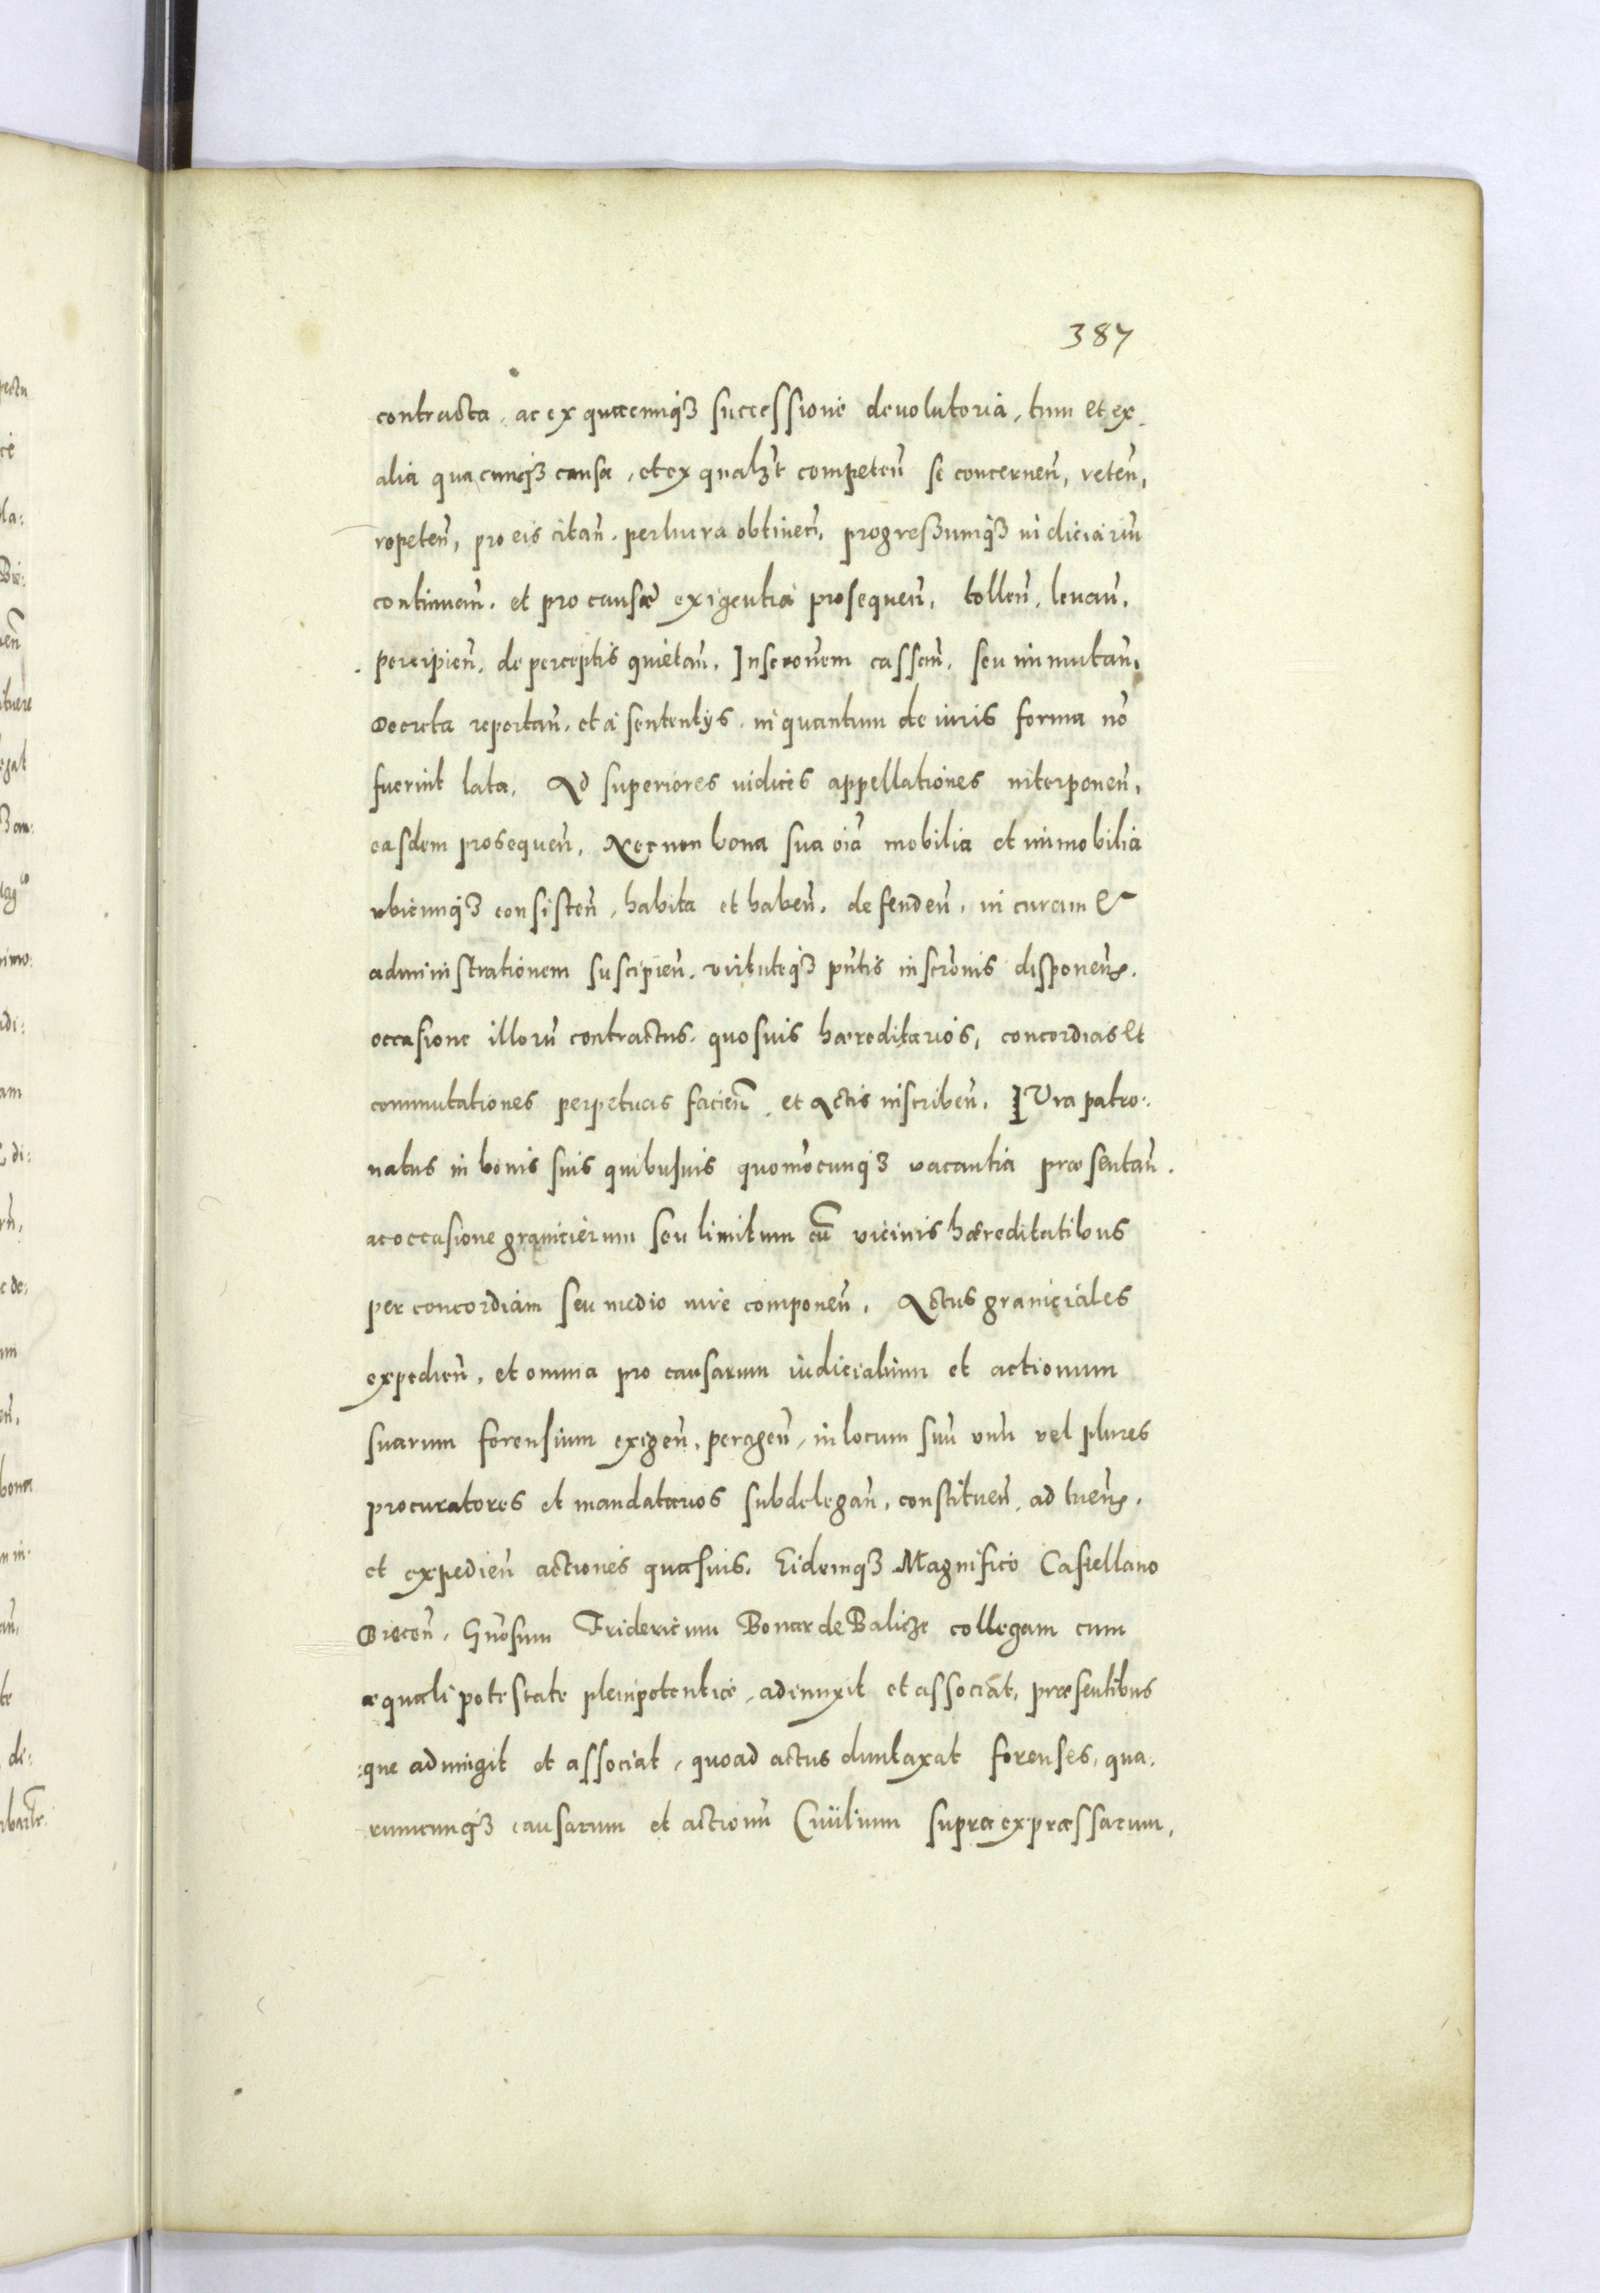 387
contracta, ac ex quacunq3 successione devolutoria, tum et ex
alia quacunq3 causa, et ex qual3t competen̄ se concernen̄, peten̄,
repeten̄, pro eis citan̄. per iura obtinen̄, progressumq3 iudiciariū
continuan̄. et pro causæ exigentia prosequen̄, tollen̄, levan̄,
percipien̄. de perceptis quietan̄. Inscronem cassan̄, seu immutan̄,
Decreta reportan̄. et à sententijs, in quantum de iuris forma nō
fuerint lata, Ad superiores iudices appellationes interponen̄,
easdem prosequen̄, Necnon bona sua oīa mobilia et immobilia
ubicunq3 consisten̄, habita et haben̄. defenden̄, in curam &
administrationem suscipien̄. virtuteq3 pn̄tis inscrōnis disponen̄.
occasione illorū contractus. quosvis hæreditarios, concordias et
commutationes perpetuas facien̄, et Actis inscriben̄. IVra patro:
natus in bonis suis quibusvis quomōcunq3 vacantia præsentan̄.
ac occasione granicierum seu limitum cū vicinis hæreditatibus
per concordiam seu medio iure componen̄. Actus graniciales
expedien̄. et omnia pro causarum iudicialium et actionum
suarum forensium exigen̄. peragen̄, in locum suū unū vel plures
procuratores et mandatarios subdelegan̄, constituen̄, ad tuen̄.
et expedien̄ actiones quasvis. Eidemq3 Magnifico Castellano
Biecen̄, Gn̄osum Fridericum Bonar de Balicze collegam cum
æquali potestate plenipotentiæ, adiunxit et associat, præsentibus
:que adiungit et associat, quoad actus duntaxat forenses, qua:
rumcunq3 causarum et actionū Civilium supra expræssarum,